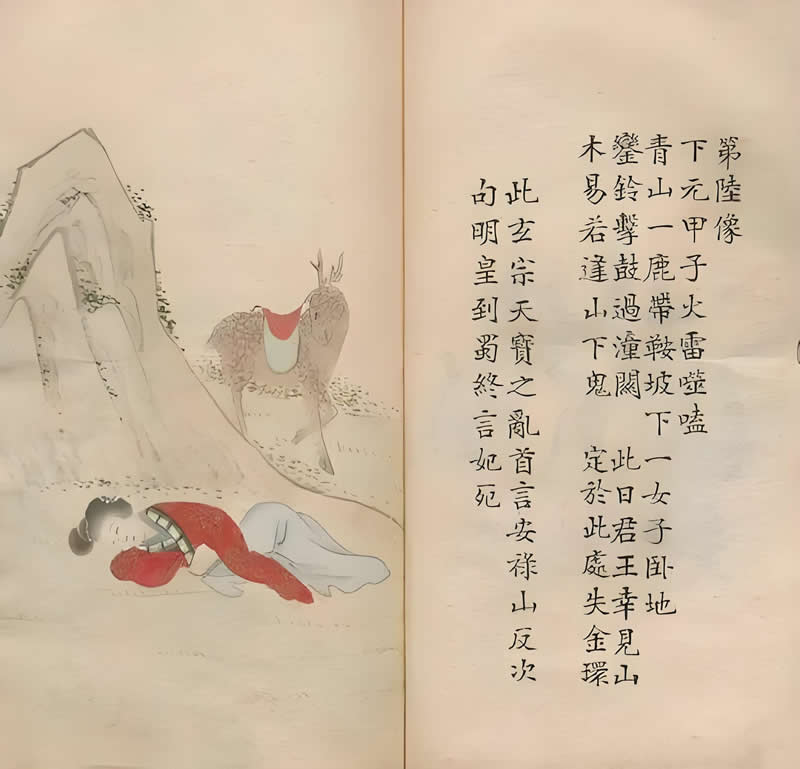 第陸像
下元甲子火雷噬嗑
青山一鹿帶鞍坡下一女子卧地
鑾鈴擊鼓過潼關 此日君王幸見山
木易若逢山下鬼 定於此處失金環
此玄宗天寶之亂首言安禄山反次
句明皇到蜀終言妃死